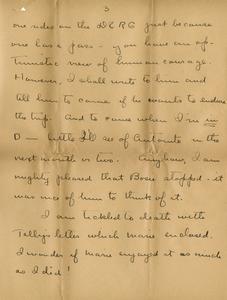 3
one rides on the D&RG just because
one has a pass - you have an op-
timistic view of human courage.
However, I shall write to him and
tell him to come if he wants to endure
the trip. And to come when I'm in
D— little I'll see of Antonito in the
next month or two. Anyhow, I am
mighty pleased that Bosie stopped - it
was nice of him to think of it.
I am tickled to death with
Telly's letter which marie enclosed.
I wonder if marie enjoyed it as much
as I did!